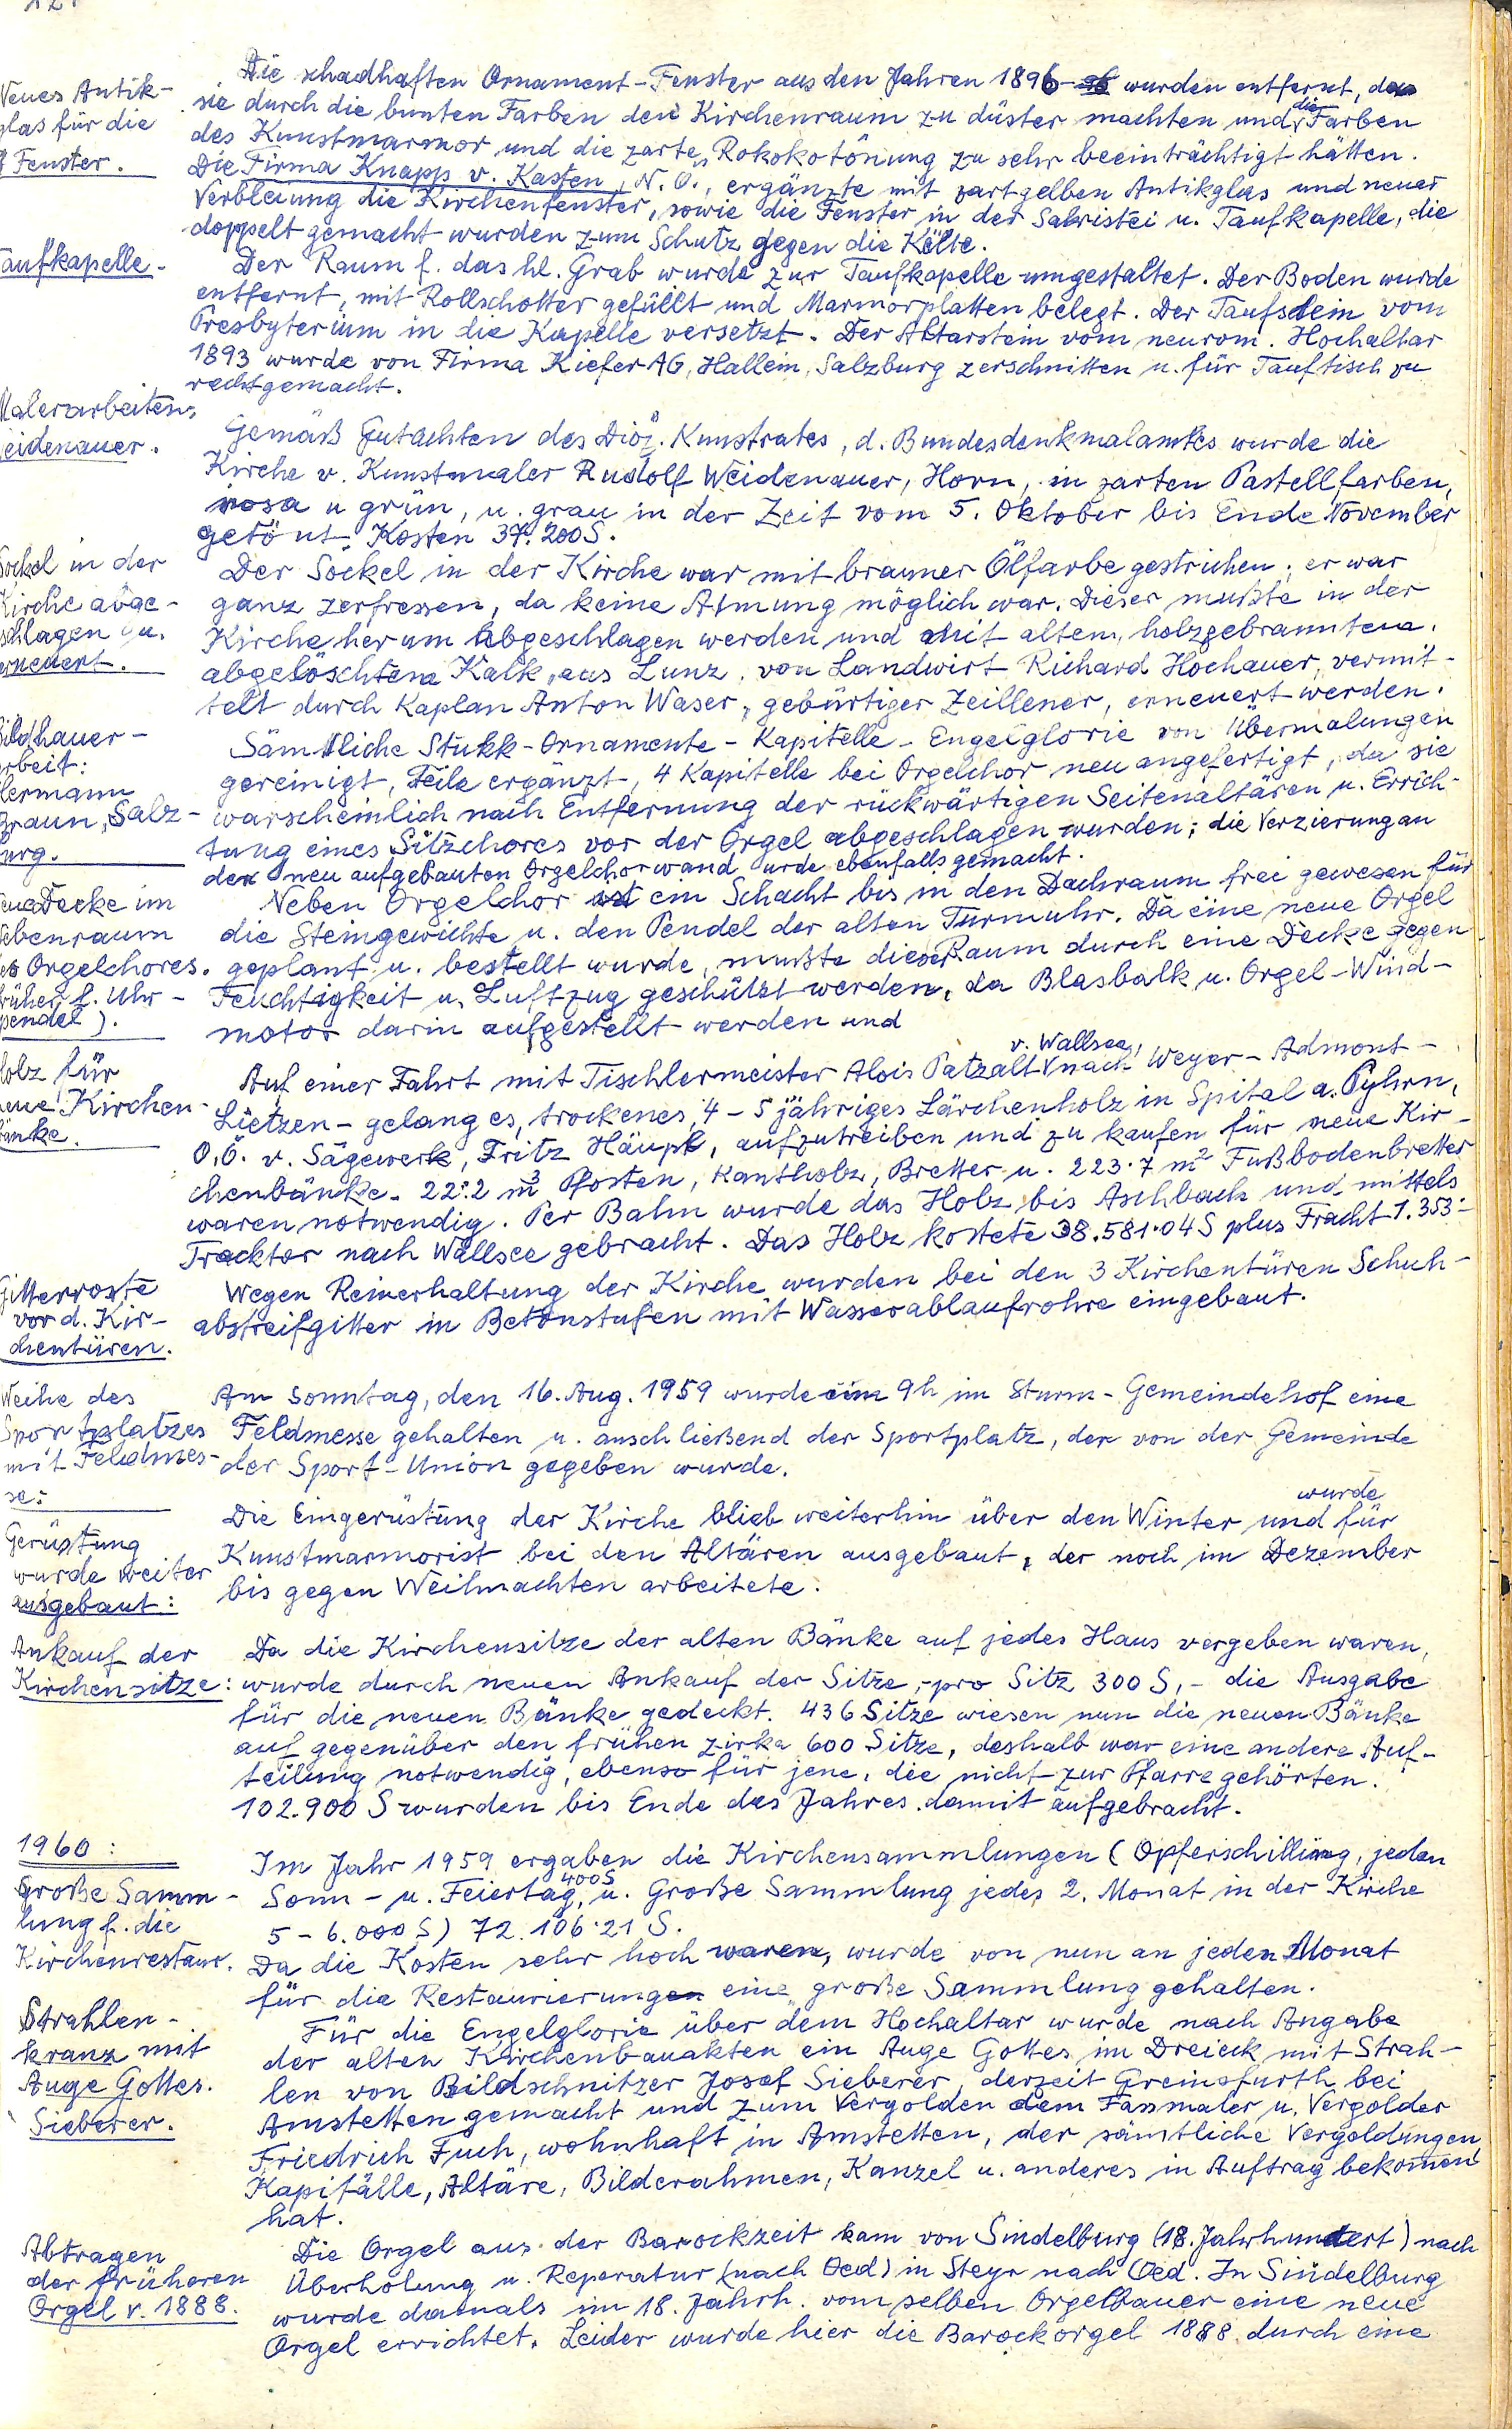 Neues Antik-
glas für die
Fenster.
Die schadhaften Ornament-Fenster aus den Jahren 1896 wurden entfernt, da
sie durch die bunten Farben den Kirchenraum zu düster machten und die Farben
des Kunstmarmor und die zarte Rokokotönung zu sehr beeinträchtigt hätten.
Die Firma Knapp v. Kasten, N.Ö., ergänzte mit zartgelben Antikglas und neuer
Verbleiung die Kirchenfenster, sowie die Fenster in der Sakristei u. Taufkapelle, die
doppelt gemacht wurden zum Schutz gegen die Kälte.
Taufkapelle.
Der Raum f. das hl. Grab wurde zur Taufkapelle umgestaltet. Der Boden wurde
entfernt, mit Rollschotter gefüllt und Marmorplatten belegt. Der Taufstein vom
Presbyterium in die Kapelle versetzt. Der Altarstein vom neurom. Hochaltar
1893 wurde von Firma Kiefer AG, Hallein, Salzburg zerschnitten u. für Tauftisch zu
rechtgemacht.
Malerarbeiten,
Weidenauer.
Gemäß Gutachten des Diöz. Kunstrates, d. Bundesdenkmalamtes wurde die
Kirche v. Kunstmaler Rudolf Weidenauer, Horn, in zarten Pastellfarben,
rosa u grün, u. grau in der Zeit vom 5. Oktober bis Ende November
getönt. Kosten 37.200 S.
Sockel in der
Kirche abge-
schlagen u.
erneuert.
Der Sockel in der Kirche war mit brauner Ölfarbe gestrichen; er war
ganz zerfressen, da keine Atmung möglich war. Dieser mußte in der
Kirche herum abgeschlagen werden und mit altem, holzgebranntem,
abgelöschtem Kalk, aus Lunz, von Landwirt Richard Hochauer, vermit-
telt durch Kaplan Anton Waser, gebürtiger Zeillener, erneuert werden.
Bildhauer-
arbeit:
Hermann
Braun, Salz-
burg.
Sämtliche Stukk-Ornamente - Kapitelle - Engelglorie von Übermalungen
gereinigt, Teile ergänzt, 4 Kapitelle bei Orgelchor neu angefertigt, da sie
warscheinlich nach Entfernung der rückwärtigen Seitenaltären u. Errich-
tung eines Sitzchores vor der Orgel abgeschlagen wurden; die Verzierung an
der neu aufgebauten Orgelchorwand urde ebenfalls gemacht.
neue Decke im
Nebenraum
des Orgelchores.
(früher f. Uhr-
pendel).
Neben Orgelchor ist ein Schacht bis in den Dachraum frei gewesen für
die Steingewichte u. den Pendel der alten Turmuhr. Da eine neue Orgel
geplant u. bestellt wurde, mußte dieser Raum durch eine Decke gegen
Feuchtigkeit u. Luftzug geschützt werden, da Blasbalk u. Orgel-Wind-
motor darin aufgestellt werden und
Holz für
neue Kirchen-
bänke.
Auf einer Fahrt mit Tischlermeister Alois Patzalt v. Wallsee, nach Weyer - Admont -
Lietzen - gelang es, trockenes, 4-5 jähriges Lärchenholz in Spital a. Pyhrn,
O.Ö. v. Sägewerk, Fritz Häupl, aufzutreiben und zu kaufen für neue Kir-
chenbänke. 22.2 m³ Pfosten, Kantholz, Bretter u. 223.7 m² Fußbodenbretter
waren notwendig. Per Bahn wurde das Holz bis Aschbach und mittels
Tracktor nach Wallsee gebracht. Das Holz kostete 38.581.04 S plus Fracht 1.353.-
Gitterroste
vor d. Kir-
chentüren.
Wegen Reinerhaltung der Kirche wurden bei den 3 Kirchentüren Schuh-
abstreifgitter in Betonstufen mit Wasserablaufrohre eingebaut.
Weihe des
Sportplatzes
mit Feldmes-
se:
Am Sonntag, den 16. Aug. 1959 wurde um 9h im Sturm-Gemeindehof eine
Feldmesse gehalten u. anschließend der Sportplatz, der von der Gemeinde
der Sport-Union gegeben wurde.
Gerüstung
wurde weiter
ausgebaut:
Die Eingerüstung der Kirche blieb weiterhin über den Winter und wurde für
Kunstmarmorist bei den Altären ausgebaut, der noch im Dezember
bis gegen Weihnachten arbeitete.
Ankauf der
Kirchensitze:
Da die Kirchensitze der alten Bänke auf jedes Haus vergeben waren,
wurde durch neuen Ankauf der Sitze, pro Sitz 300 S,- die Ausgabe
für die neuen Bänke gedeckt. 436 Sitze wiesen nun die neuen Bänke
auf gegenüber den frühen zirka 600 Sitze, deshalb war eine andere Auf-
teilung notwendig, ebenso für jene, die nicht zur Pfarre gehörten.
102.900 S wurden bis Ende des Jahres damit aufgebracht.
1960:
Große Samm-
lung f. die
Kirchenrestaur.
Im Jahr 1959 ergaben die Kirchensammlungen (Opferschilling, jeden
Sonn- u. Feiertag, 400 S u. Große Sammlung jedes 2. Monat in der Kirche
5-6.000 S) 72.106.21 S.
Da die Kosten sehr hoch waren, wurde von nun an jeden Monat
für die Restaurierung eine große Sammlung gehalten.
Strahlen-
kranz mit
Auge Gottes.
Sieberer.
Für die Engelglorie über dem Hochaltar wurde nach Angabe
der alten Kirchenbauakten ein Auge Gottes im Dreieck mit Strah-
len von Bildschnitzer Josef Sieberer, derzeit Greinsfurth bei
Amstetten gemacht und zum Vergolden dem Fassmaler u. Vergolder
Friedrich Fuch, wohnhaft in Amstetten, der sämtliche Vergoldungen
Kapitälle, Altäre, Bilderahmen, Kanzel u. anderes in Auftrag bekomen
hat.
Abtragen
der früheren
Orgel v. 1888.
Die Orgel aus der Barockzeit kam von Sindelburg (18. Jahrhundert) nach
Überholung u. Reperatur (nach Oed) in Steyr nach Oed. In Sindelburg
wurde damals im 18. Jahrh. vom selben Orgelbauer eine neue
Orgel errichtet. Leider wurde hier die Barockorgel 1888 durch eine